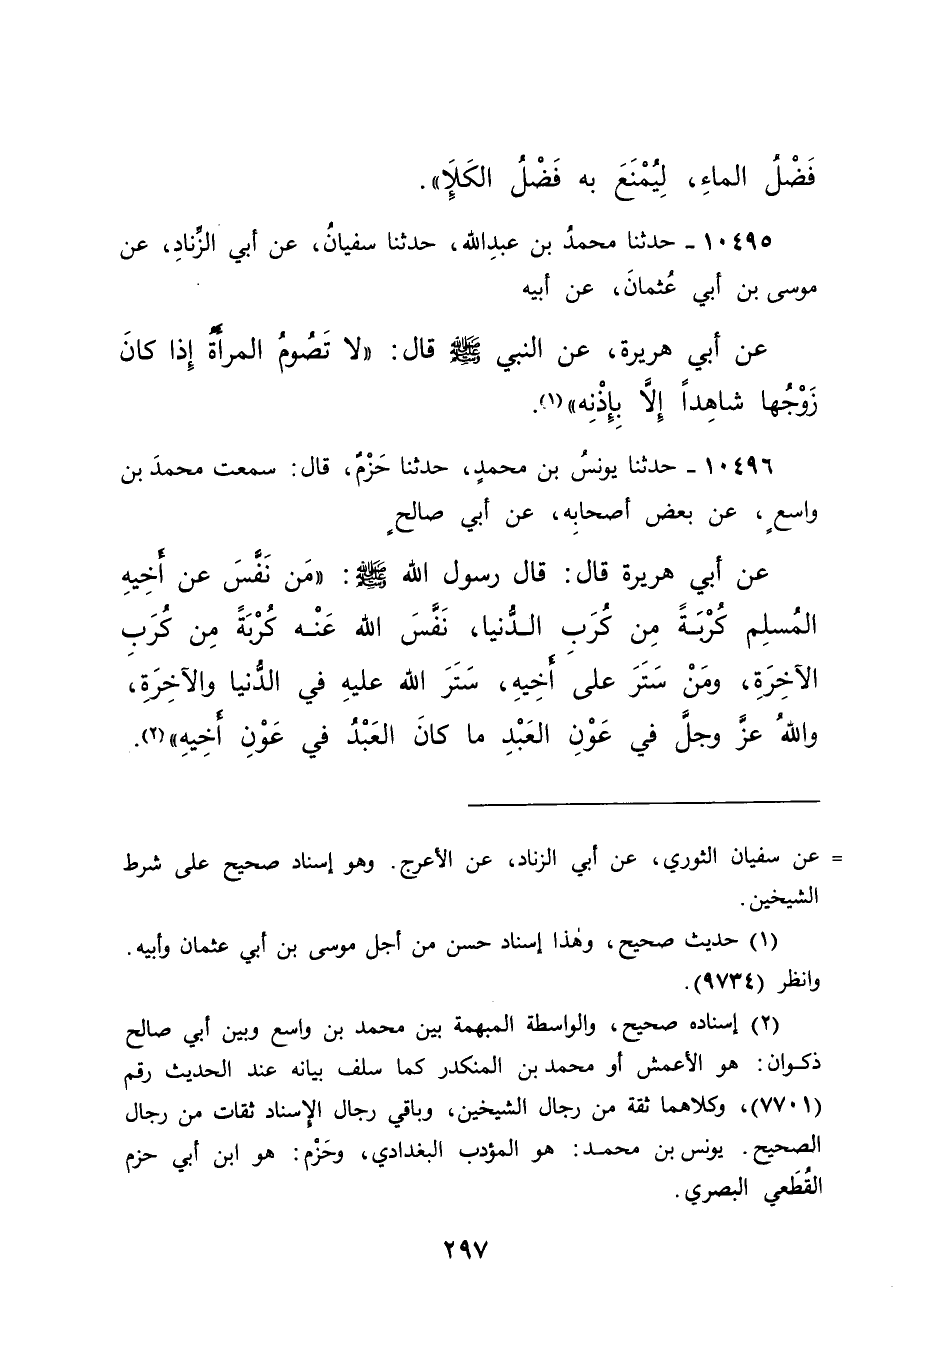 فَضْلُ الماءِ، لِيُمْنَعَ به فَضْلُ الكَلَإِ».
١٠٤٩٥ - حدثنا محمدُ بن عبدِالله، حدثنا سفيانُ، عن أبي الزِّنادِ، عن
موسى بن أبي عُثمانَ، عن أبيه
عن أبي هريرة، عن النبي ﷺ قال: «لا تَصُومُ المرأَةُ إِذا كانَ
زَوْجُها شاهِداً إِلَّا بِإِذْنِه»(١).
١٠٤٩٦ - حدثنا يونسُ بن محمدٍ، حدثنا حَزْمٌ، قال: سمعت محمدَ بن
واسعٍ، عن بعض أصحابِه، عن أبي صالحٍ
عن أبي هريرة قال: قال رسول الله ﷺ: «مَن نَفَّسَ عن أَخِيهِ
المُسلِم كُرْبَةً مِن كُرَبِ الدُّنيا، نَفَّسَ الله عَنْه كُرْبَةً مِن كُرَبِ
الآخِرَةِ، ومَنْ سَتَرَ على أَخِيهِ، سَتَرَ الله عليهِ في الدُّنيا والآخِرَةِ،
واللهُ عزَّ وجلَّ في عَوْنِ العَبْدِ ما كانَ العَبْدُ في عَوْنِ أَخِيهِ»(٢).
= عن سفيان الثوري، عن أبي الزناد، عن الأعرج. وهو إسناد صحيح على شرط
الشيخين.
(١) حديث صحيح، وهٰذا إسناد حسن من أجل موسى بن أبي عثمان وأبيه.
وانظر (٩٧٣٤).
(٢) إسناده صحيح، والواسطة المبهمة بين محمد بن واسع وبين أبي صالح
ذكوان: هو الأعمش أو محمد بن المنكدر كما سلف بيانه عند الحديث رقم
(٧٧٠١)، وكلاهما ثقة من رجال الشيخين، وباقي رجال الإسناد ثقات من رجال
الصحيح. يونس بن محمد: هو المؤدب البغدادي، وحَزْم: هو ابن أبي حزم
القُطَعي البصري.
٢٩٧